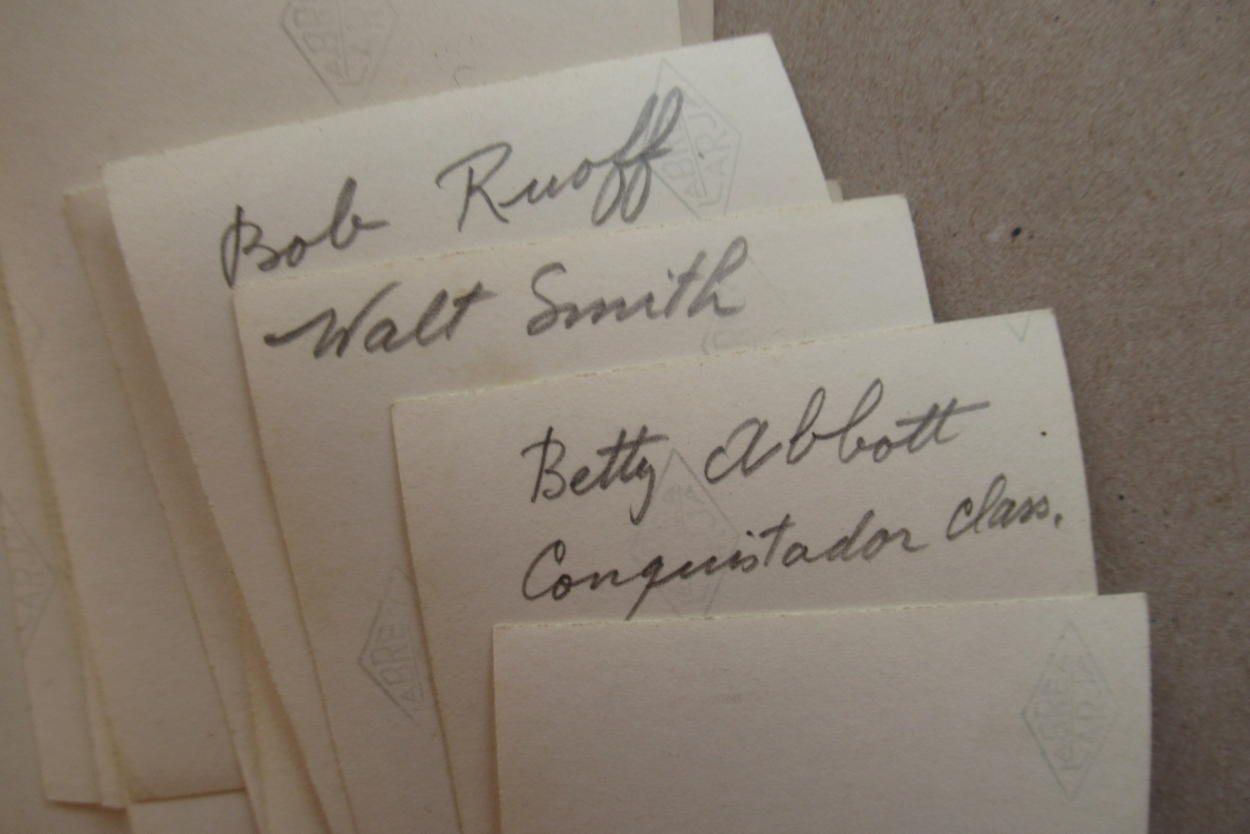 Bob Ruoff
Walt Smith
Betty Abbott
Conquistador class.